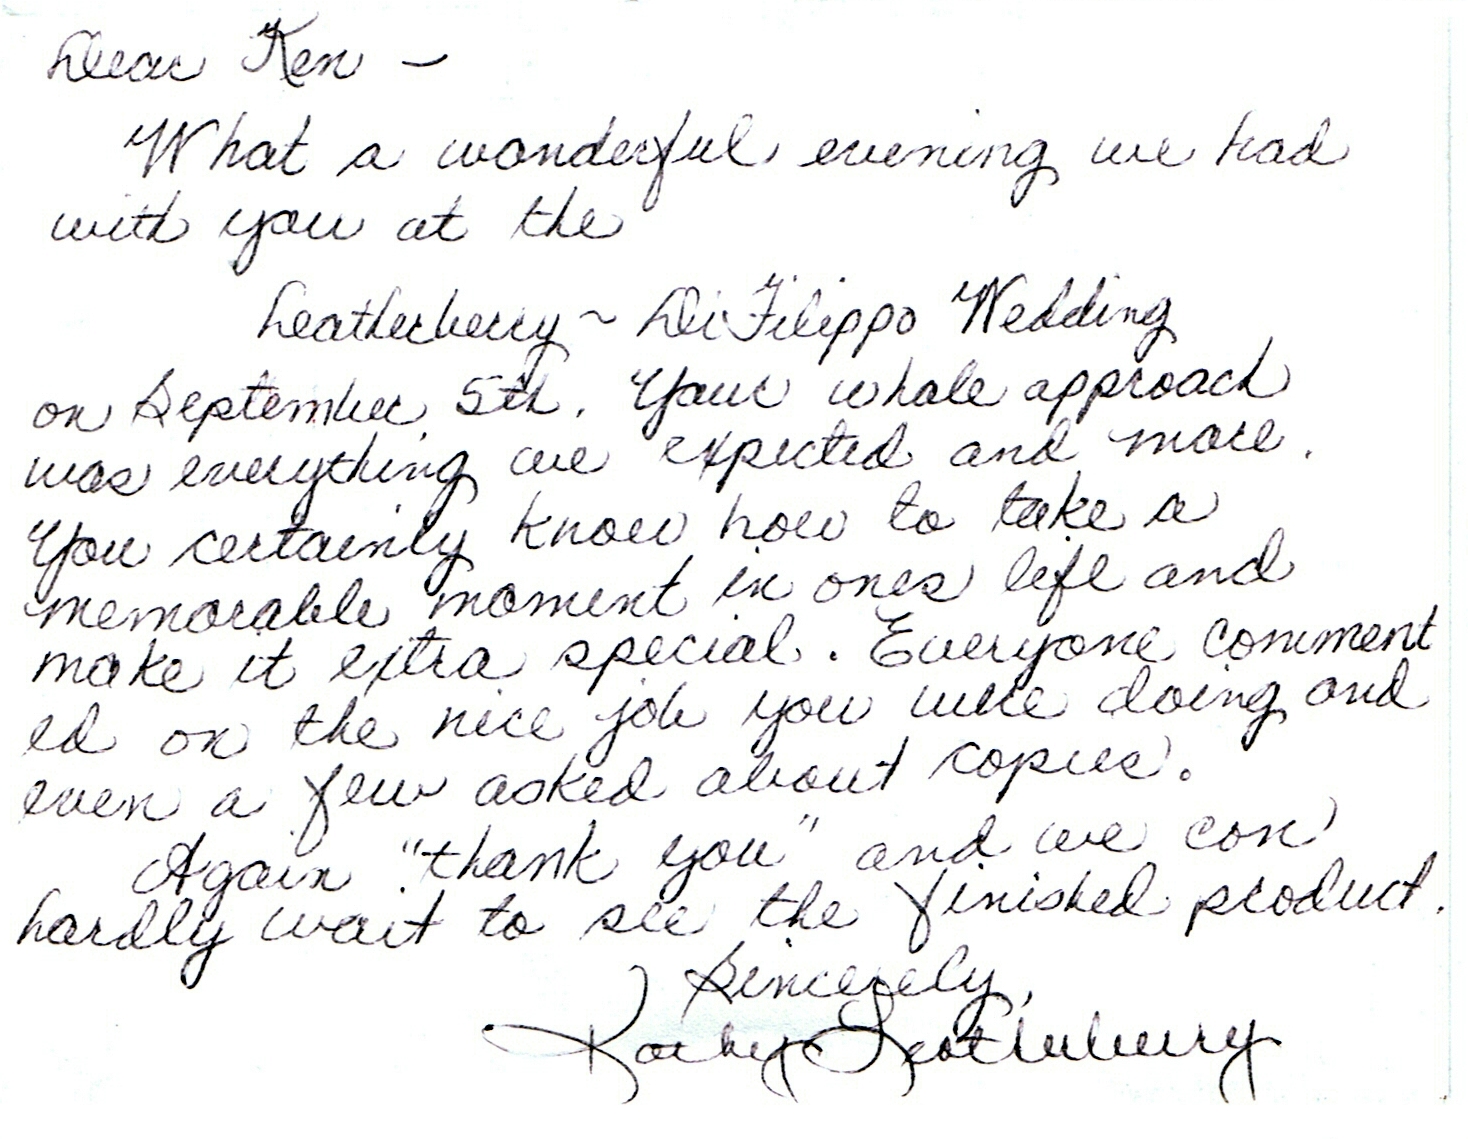 Dear Ken –
What a wonderful evening we had
with you at the
Leatherberry ~ DiFilippo Wedding
on September 5th. Your whole approach
was everything we expected and more.
You certainly know how to take a
memorable moment in ones life and
make it extra special. Everyone comment
ed on the nice job you were doing and
even a few asked about copies.
Again "thank you" and we can
hardly wait to see the finished product.
Sincerely,
Kathy Leatherberry